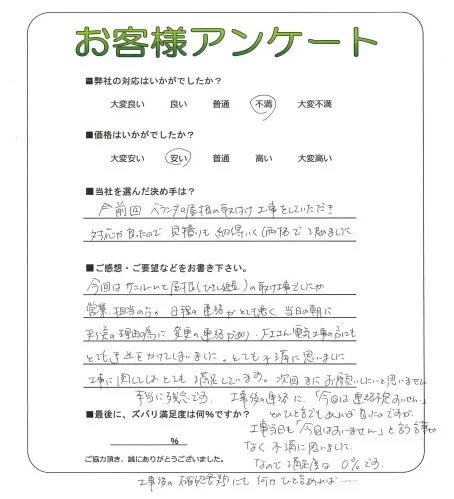 お客様アンケート
■弊社の対応はいかがでしたか？
大変良い 良い 普通 不満 大変不満
■価格はいかがでしたか？
大変安い 安い 普通 高い 大変高い
■当社を選んだ決め手は？
前回 ベランダの屋根の取付け工事をしていただき
対応が良かったので 見積りも納得いく価格で決めました
■ご感想・ご要望などをお書き下さい。
今回はサンルームと屋根の取付け工事でしたが
営業担当の方の日程の連絡がとても悪く 当日の朝に
の理由の為に変更の連絡があり、エアコン電気工事の方にも
とても迷惑をかけてしまいました。とても不満に思いました
工事に関してはとても満足しています。次回またお願いしたいと思いません
本当に残念です。工事後の連絡に、「今回は連絡行きすいません」
のひと言でもあれば良いのですが、
■最後に、ズバリ満足度は何%ですか？
工事当日も「今回はすいません」と言う言葉が
なく 不満に思いました。
%
なので満足度は 0%です。
ご協力頂き、誠にありがとうございました。
工事後の にも 何かひと言あれば……